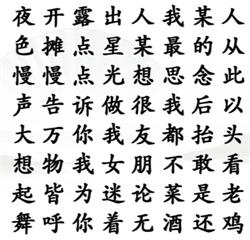 夜开露出人我某人
色摊点星某最的从
慢慢点光想思念此
声告诉做很我后以
大万你我友都抬头
想物我女朋不敢看
起皆为迷论菜是老
舞呼你着无酒还鸡